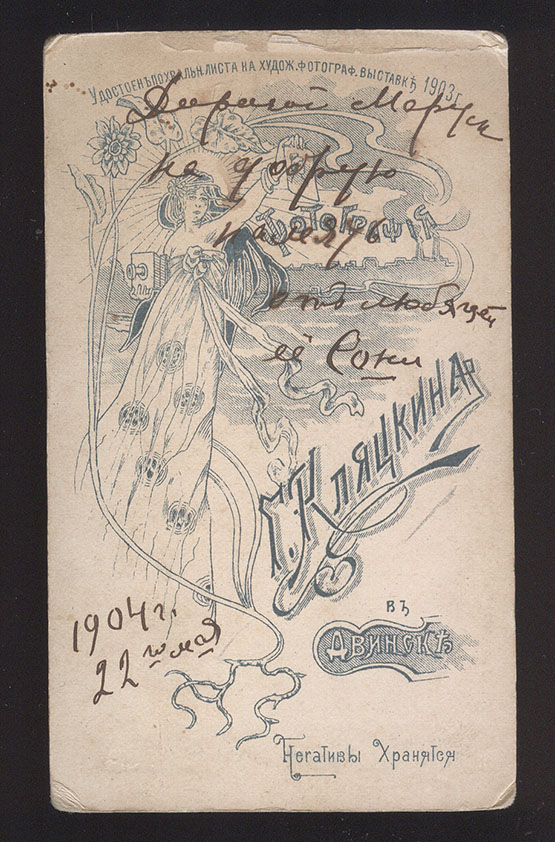 Удостоенъ похвальн. листа на худож. фотограф. выставкѣ 1903 г.
Дорогой Маруси
на добрую
память
отъ любящей
её Сони
Фотографія
Г. Кляцкина
въ
Двинскѣ
1904 г.
22го мая
Негативы Хранятся